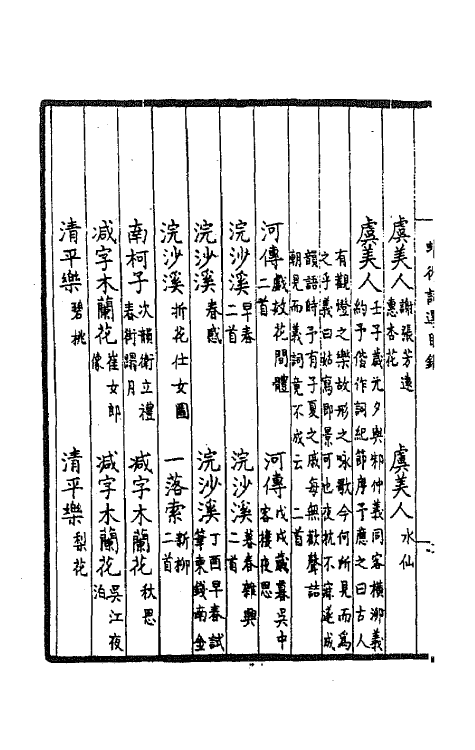 虞美人 謝張芳遠惠杏花
虞美人 水仙
虞美人 壬子歲元夕與邾仲義同客橫泖義約予偕作詞紀節序予應之曰古人
有觀燈之樂故形之咏歌今何所見而為
之乎義曰姑寫即景可也夜枕不寐遂成
韻語時予有子夏之戚每無歡聲詰
朝見而義詞竟不成云
河傳二首 戲效花間體
河傳 戊戌歲暮吳中客樓夜思
浣沙溪 早春二首
浣沙溪 暮春雜興二首
浣沙溪 春感
浣沙溪 丁酉早春試筆柬錢南金
浣沙溪 折花仕女圖
一落索 新柳
南柯子 次韻衛立禮春街踏月
減字木蘭花 秋思
減字木蘭花 崔女郎像
減字木蘭花 吳江夜泊
清平樂 碧桃
清平樂 梨花